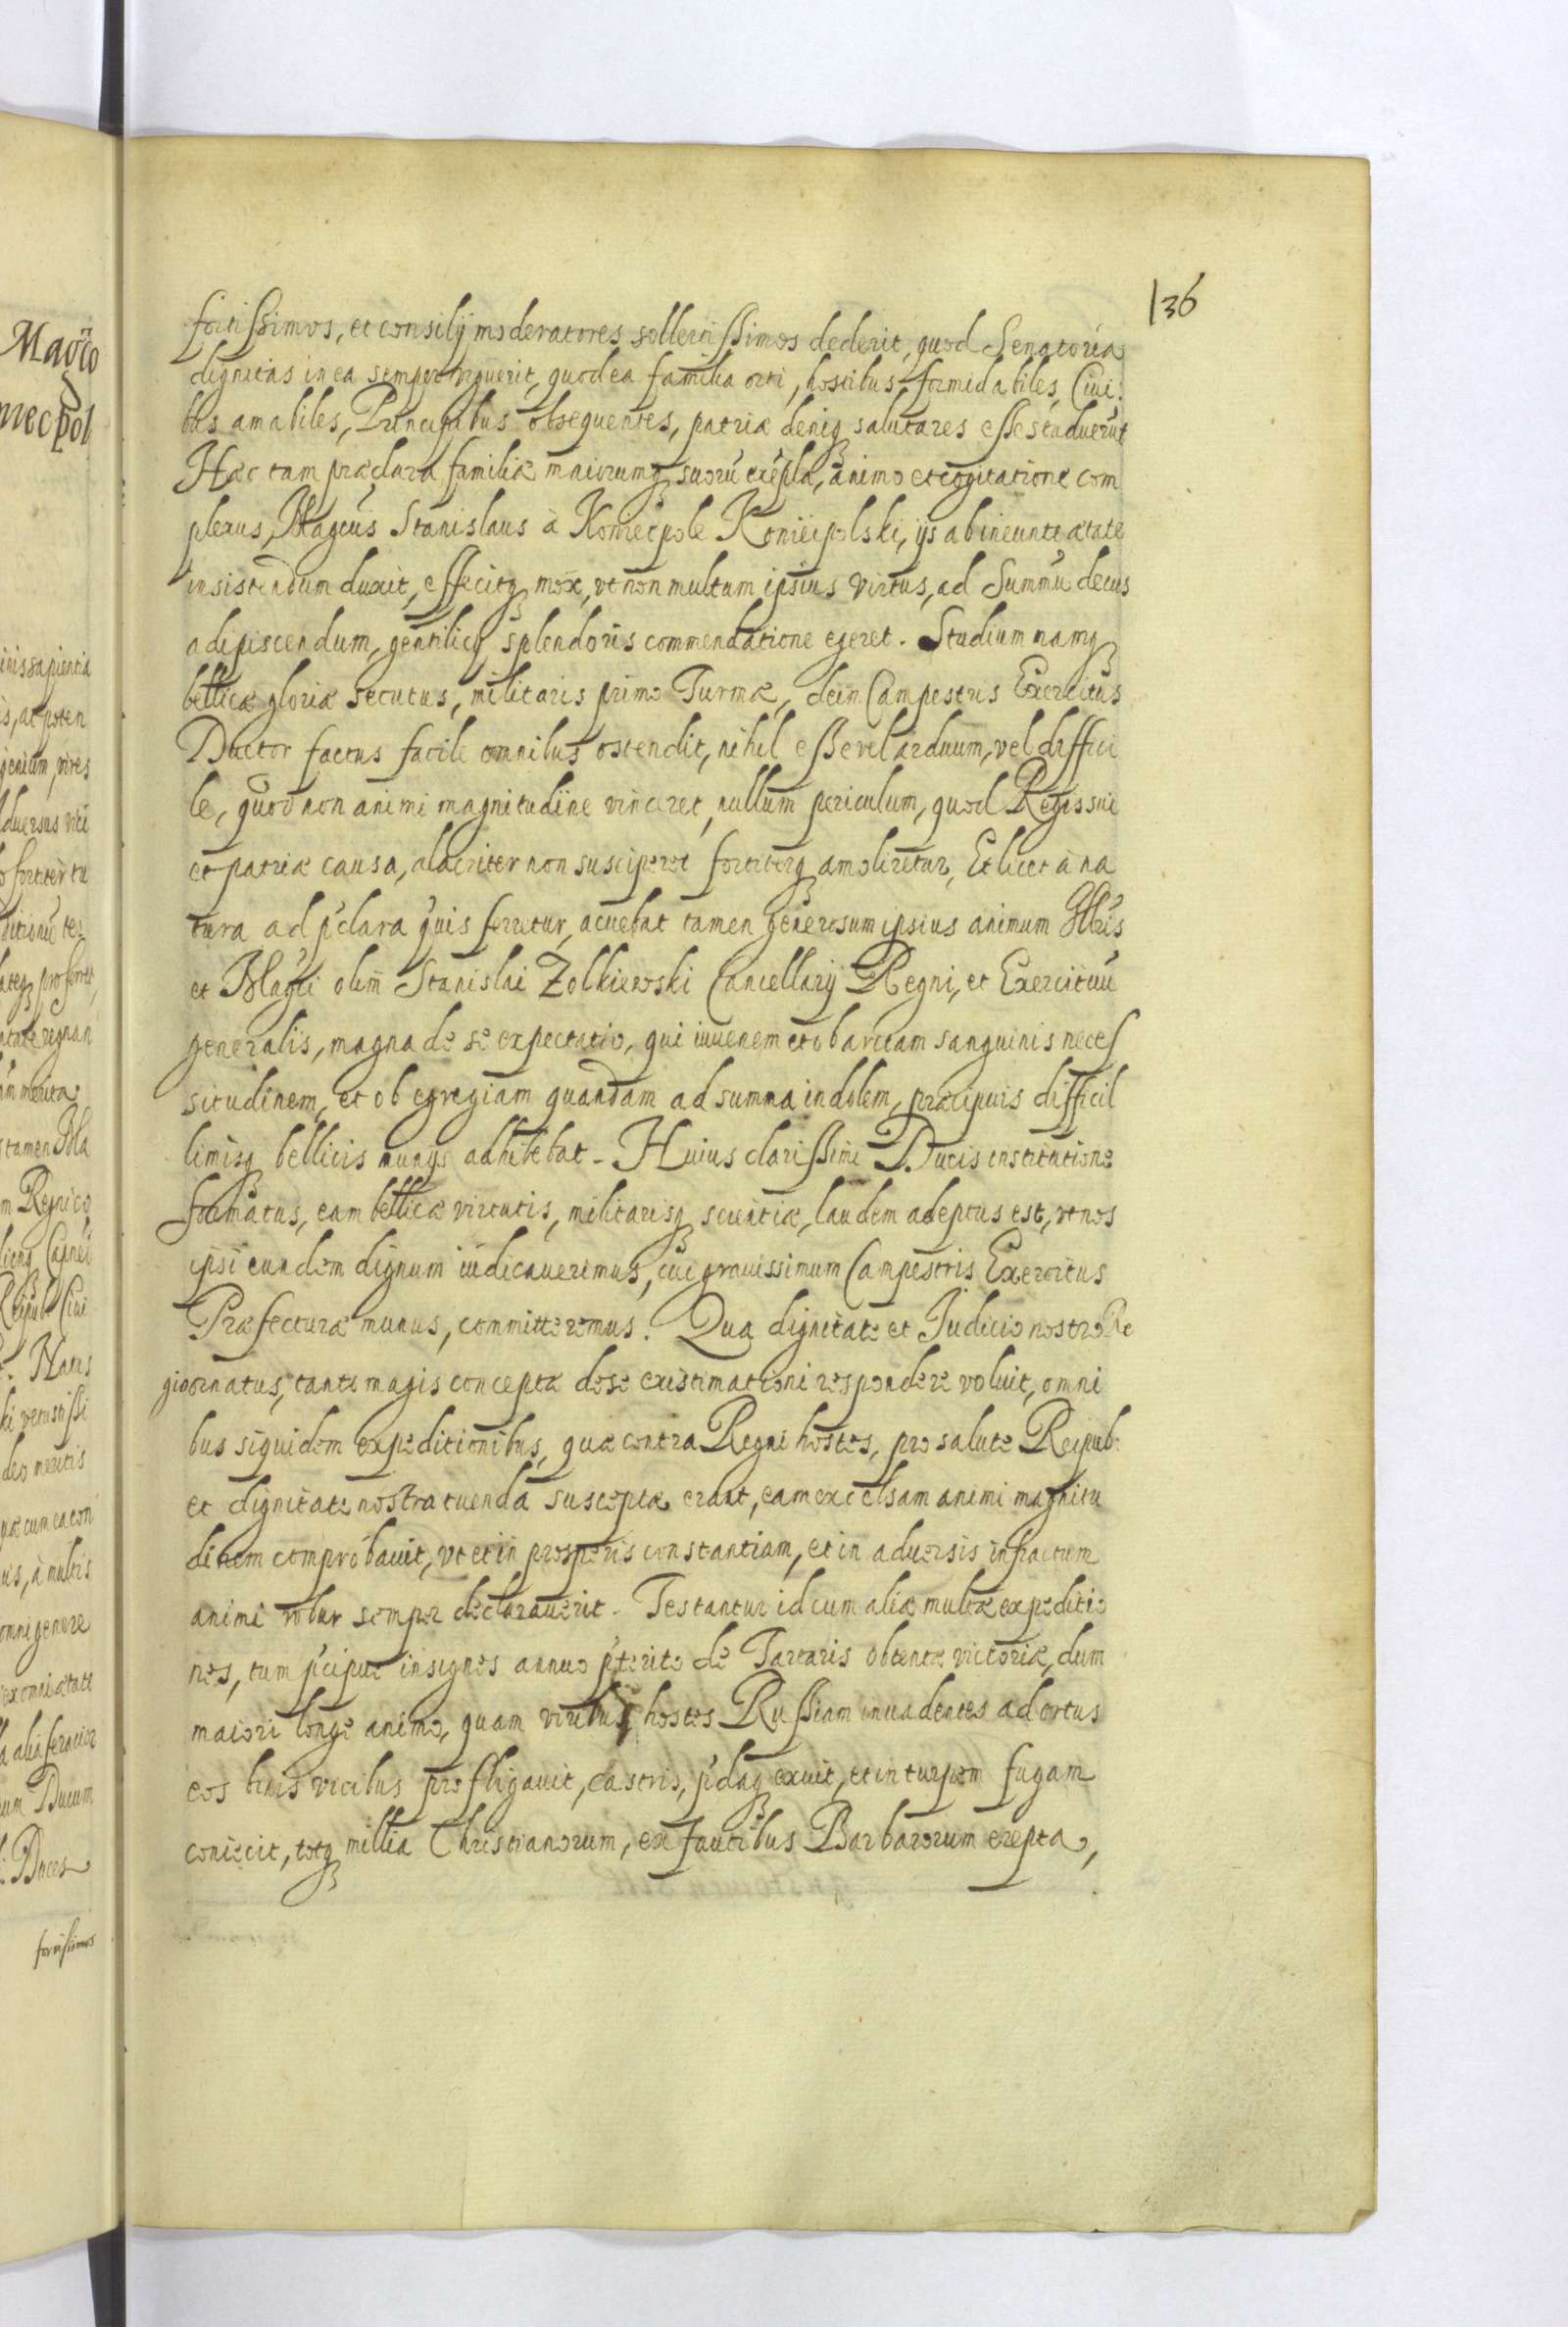 136
fortissimos, et consilij moderatores sollertissimos dederit, quod Senatoria
dignitas in ea semper viguerit, quod ea familia orti, hostibus formidabiles, Ciui:
bus amabiles, Principibus obsequentes, patriæ deniq salutares esse studuerūt
Hæc tam præclara familiæ maiorumq suorū exēpla, animo et cogitatione com
plexus, Magcūs Stanislaus à Koniecpole Koniecpolski, ijs ab ineunte ætate
insistendum duxit, effecitq mox, vt non multum ipsius virtus, ad Summū decus
adipiscendum, gentilicij splendoris commendatione egeret. Studium namq
bellicæ gloriæ secutus, militaris primo Turmæ, dein Campestris Exercitus
Ductor factus facile omnibus ostendit, nihil esse vel arduum, vel diffici
le, quod non animi magnitudine vinceret, nullum periculum, quod Regis sui
et patriæ causa, alacriter non susciperet fortiterq amoliretur, Et licet à na
tura ad p̄clara quis feretur, acuebat tamen generosum ipsius animum Illris
et Magci olim Stanislai Zolkiewski Cancellarij Regni, et Exercituū
generalis, magna de se expectatio, qui iuuenem et ob arctam sanguinis neces
situdinem, et ob egregiam quandam ad summa indolem, præcipuis difficil
limisq bellicis munijs adhibebat. Huius clarissimi Ducis institutione
formatus, eam bellicæ virtutis, militarisq scientiæ, laudem adeptus est, vt nos
ipsi eundem dignum iudicauerimus, cui grauissimum Campestris Exercitus
Præfecturæ munus, committeremus. Qua dignitate et Judicio nostro Re
gio ornatus, tanto magis conceptæ de se existimationi respondere voluit, omni
bus siquidem expeditionibus, quæ contra Regni hostes, pro salute Reipub:
et dignitate nostra tuenda susceptæ erant, eam excelsam animi magnitu
dinem comprobauit, vt et in prosperis constantiam, et in aduersis infractum
animi robur semper declarauerit. Testantur id cum aliæ multæ expeditio
nes, tum p̄cipue insignes anno p̄terito de Tartaris obtentæ victoriæ, dum
maiori longe animo, quam viribus, hostes Russiam inuadentes adortus
eos binis vicibus profligauit, castris, p̄daq exuit, et in turpem fugam
coniecit, totq millia Christianorum, ex faucibus Barbarorum erepta,